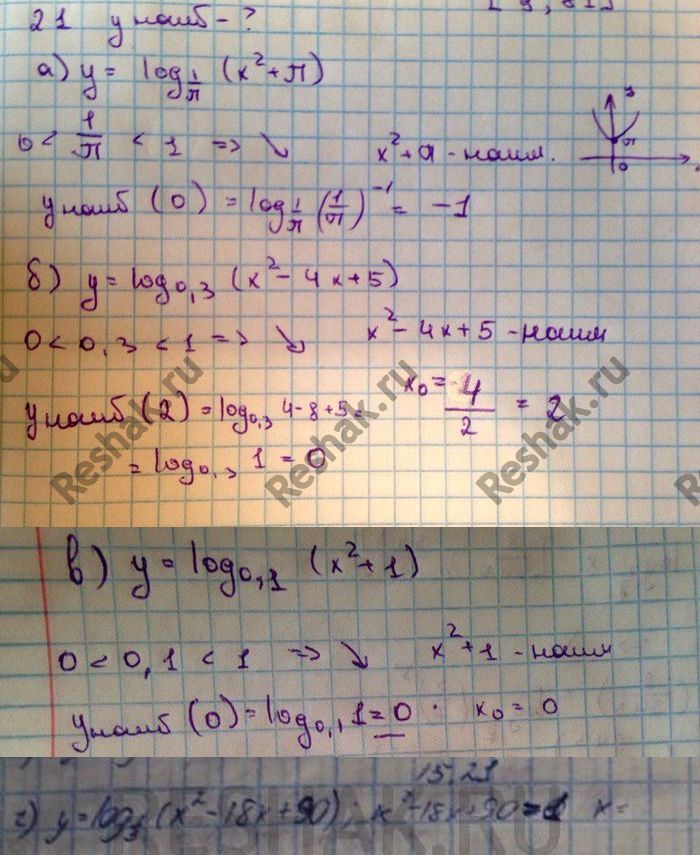 21 y наиб - ?
а) y = log_{1/π} (x² + π)
0 < 1/π < 1 => ↘ x² + π - наим.
y наиб (0) = log_{1/π} (1/π)^{-1} = -1
б) y = log_{0,3} (x² - 4x + 5)
0 < 0,3 < 1 => ↘ x² - 4x + 5 - наим
y наиб (2) = log_{0,3} 4 - 8 + 5 = x₀ = 4/2 = 2
= log_{0,3} 1 = 0
Reshak.ru
Reshak.ru
Reshak.ru
в) y = log_{0,1} (x² + 1)
0 < 0,1 < 1 => ↘ x² + 1 - наим
y наиб (0) = log_{0,1} 1 = 0 . x₀ = 0
15.21
г) y = log_{1/3} (x² - 18x + 90); x² - 18x + 90 = x =
RESHAK.RU